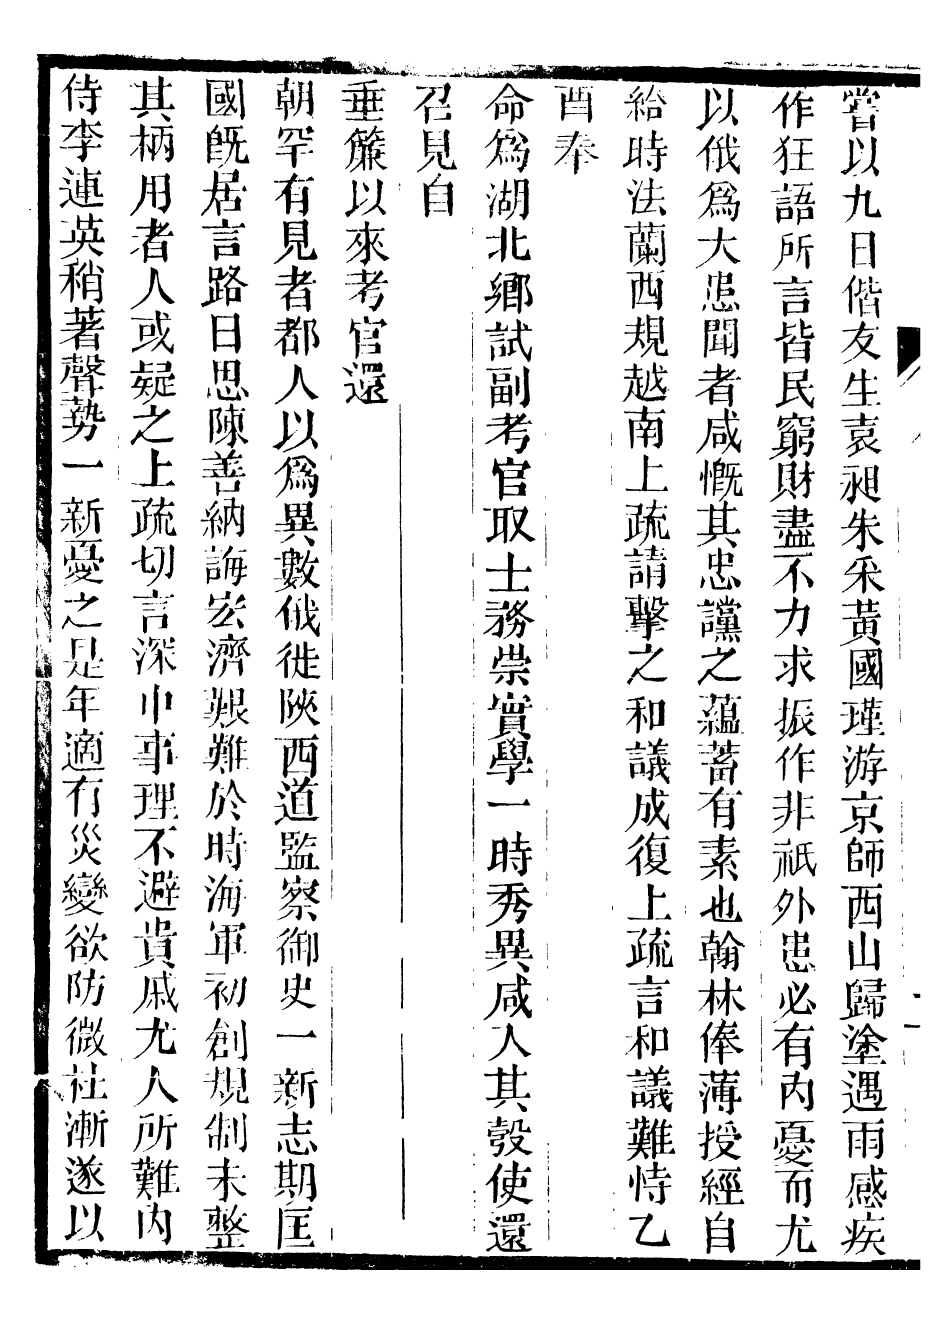 嘗以九日偕友生袁昶朱采黃國瑾游京師西山歸塗遇雨感疾
作狂語所言皆民窮財盡不力求振作非祇外患必有內憂而尤
以俄爲大患聞者咸慨其忠讜之蘊蓄有素也翰林俸薄授經自
給時法蘭西規越南上疏請擊之和議成復上疏言和議難恃乙
酉奉
命爲湖北鄉試副考官取士務崇實學一時秀異咸入其彀使還
召見自
垂簾以來考官還
朝罕有見者都人以爲異數俄徙陝西道監察御史一新志期匡
國旣居言路日思陳善納誨宏濟艱難於時海軍初創規制未整
其柄用者人或疑之上疏切言深中事理不避貴戚尤人所難內
侍李連英稍著聲勢一新憂之是年適有災變欲防微杜漸遂以